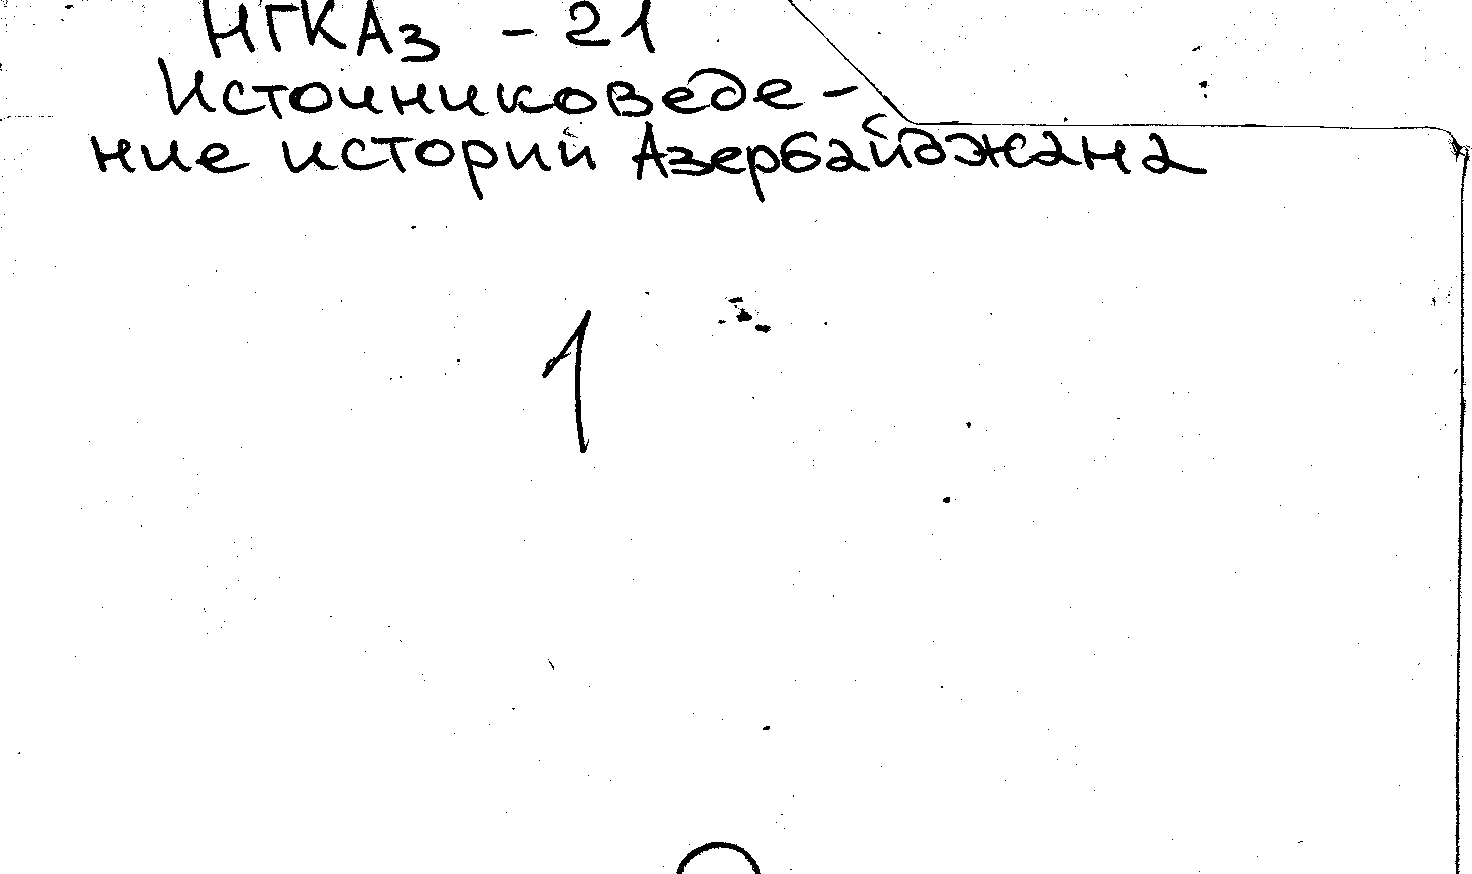 НГКАз - 21
Источниковеде-
ние историй Азербайджана
1